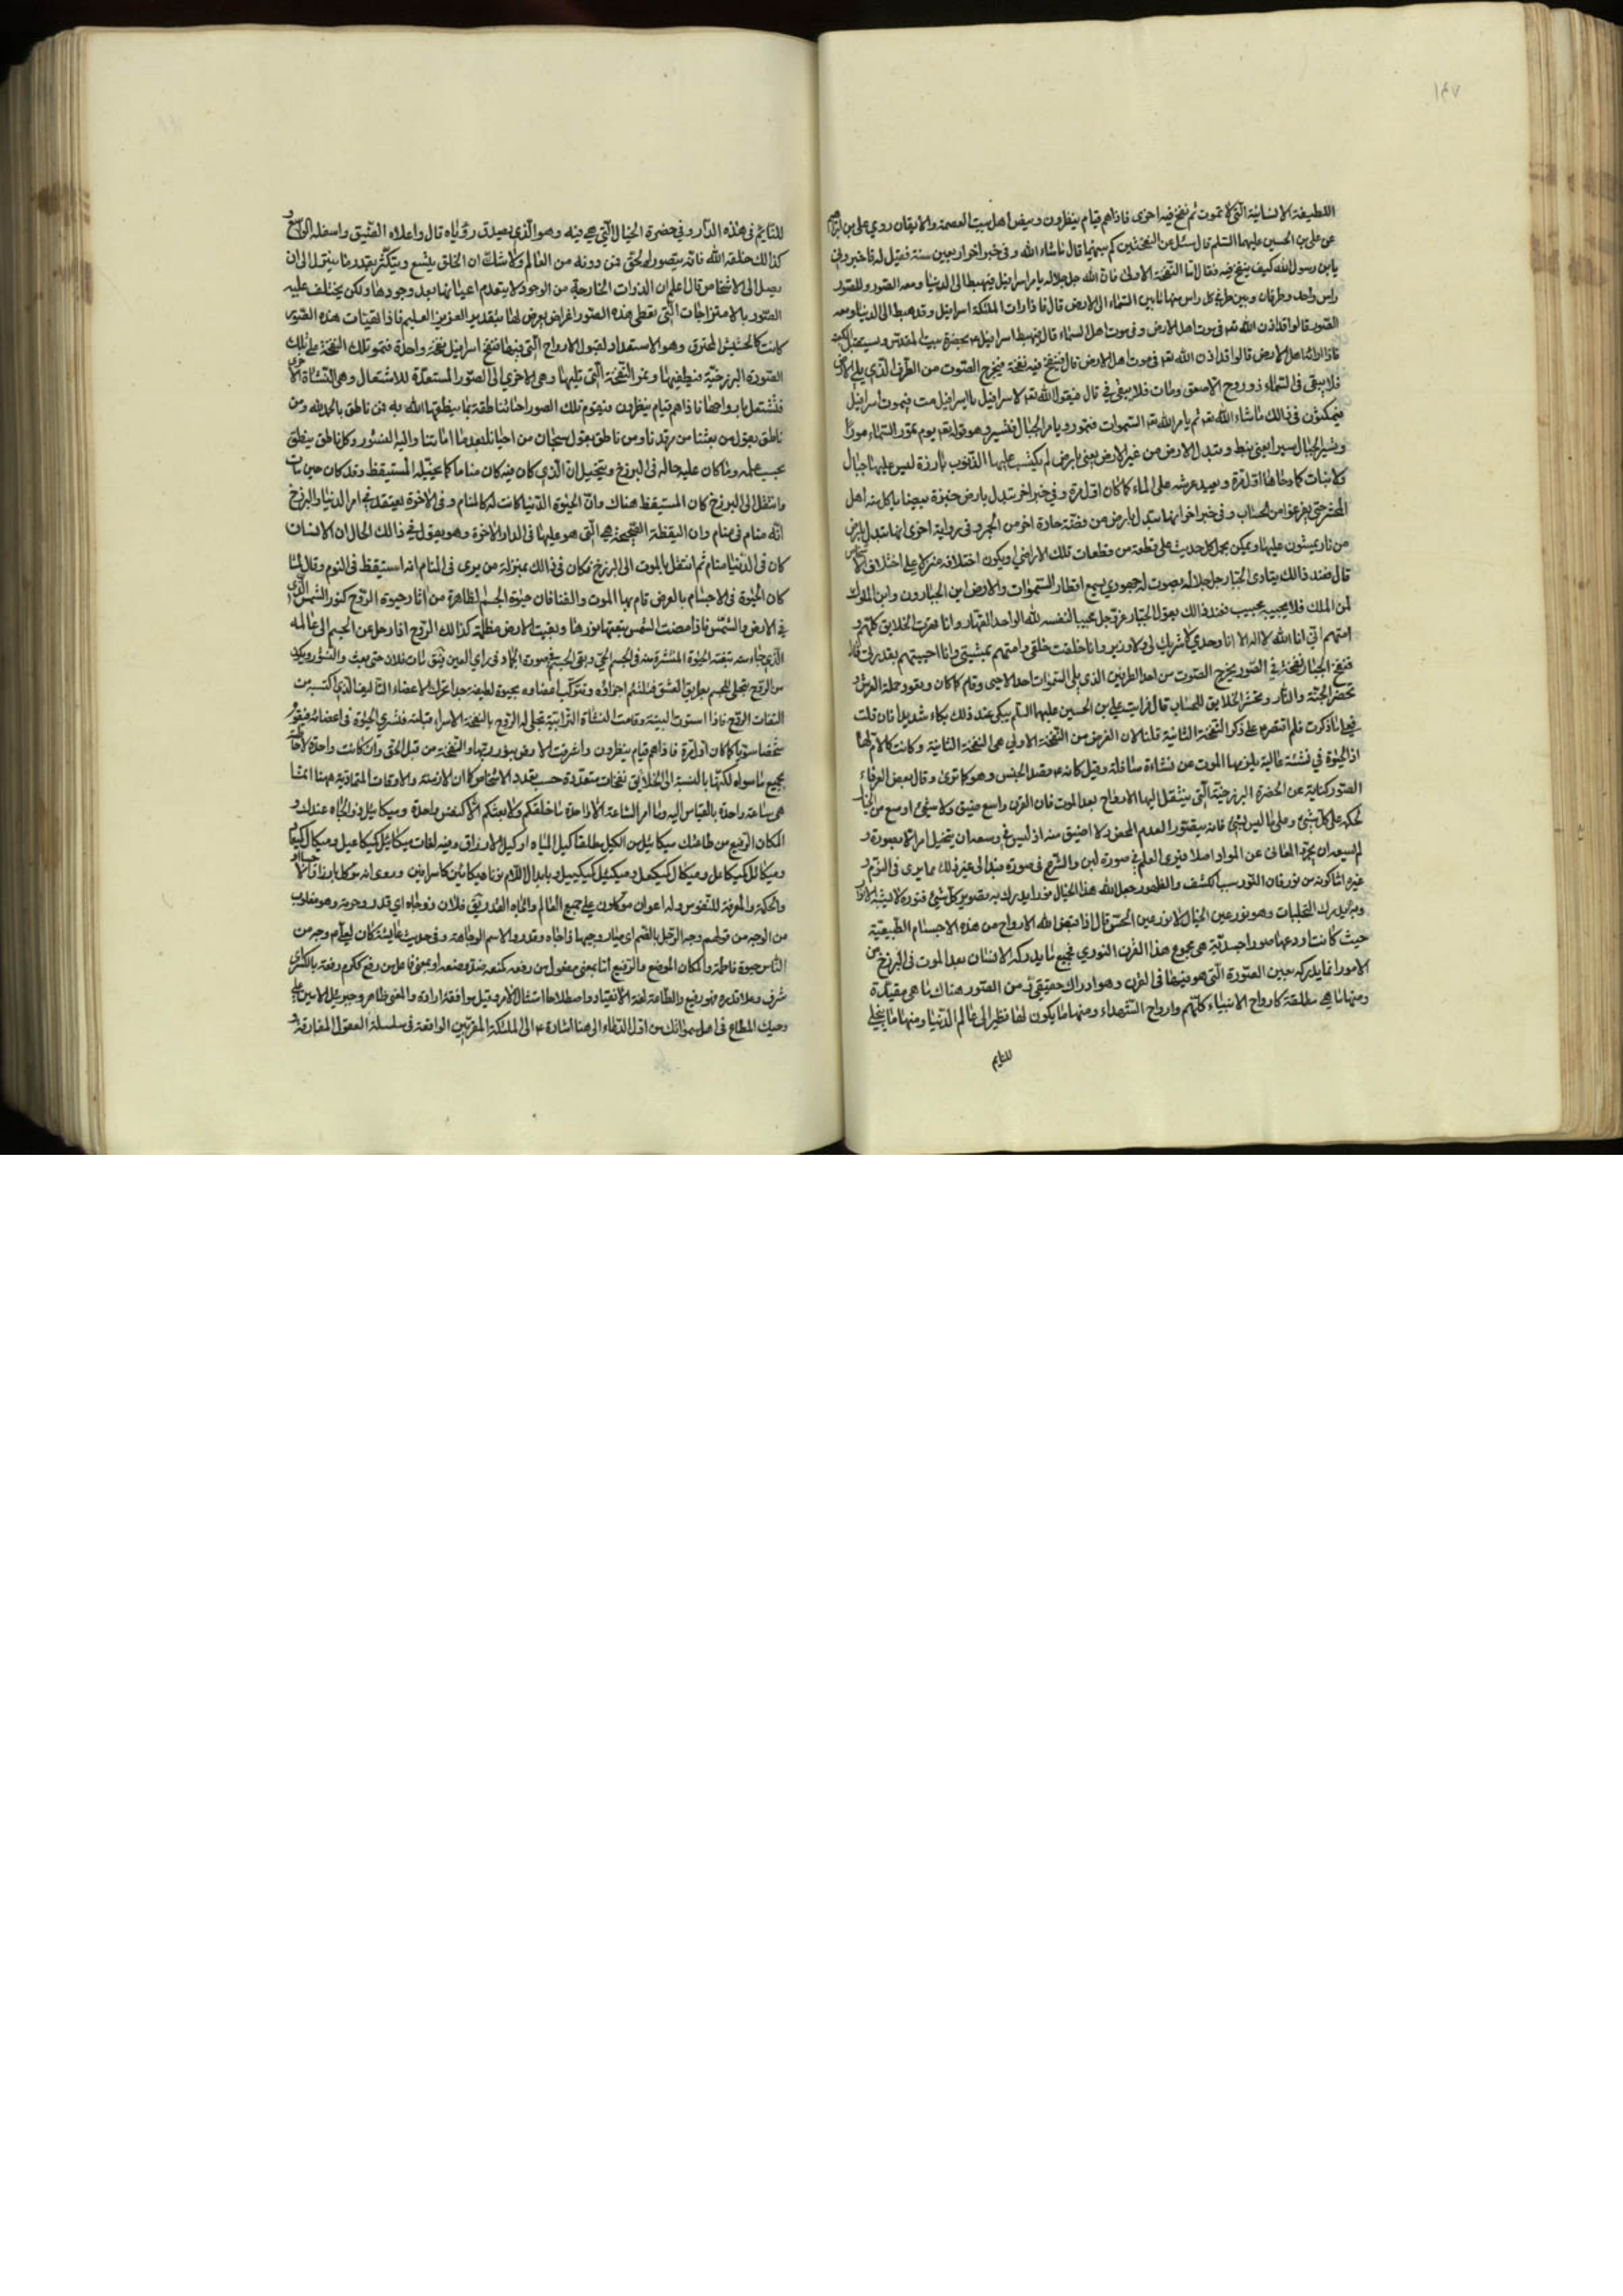 اللطيفة الانسانية التى لا تموت ثم نفخ فيه اخرى فاذا هم قيام ينظرون وبعض اهل بيت العصمة والايقان روي على بن ابراهيم
عن على بن الحسين عليهما السلم قال سئل عن النفختين كم بينهما قال ما شاء الله وفى خبر اخر اربعين سنة فقيل له فاخبرونى
يا بن رسول الله كيف ينفخ فيه فقال اما النفخة الاولى فان الله جل جلاله يامر اسرافيل فيهبط الى الدنيا ومعه الصور وللصور
راس واحد وطرفان وبين طرف كل راس منهما ما بين السماء الى الارض قال فاذا رات الملئكة اسرافيل وقد هبط الى الدنيا ومعه
الصور قالوا قد اذن الله تعه فى موت اهل الارض وفى موت اهل السماء قال فيهبط اسرافيل بحضيرة بيت المقدس ويستقبل الكعبة
فاذا راه اهل الارض قالوا قد اذن الله تعه فى موت اهل الارض قال فينفخ فيه نفخة فيخرج الصوت من الطرف الذي يلى الارض
فلا يبقى فى السماء ذو روح الا صعق ومات فلا يبقى قال فيقول الله تعه لاسرافيل يا اسرافيل مت فيموت اسرافيل
فيمكثون فى ذالك ما شاء الله تعه ثم يامر الله تعه السموات فتمور ويامر الجبال فتسير وهو قوله تعه يوم تمور السماء مورا
وتسير الجبال سيرا يعنى تبسط وتبدل الارض من غير الارض يعنى بارض لم يكتسب عليها الذنوب بارزة ليس عليها جبال
ولا نبات كما دحاها اول مرة ويعيد عرشه على الماء كما كان اول مرة وفى خبر اخر تبدل بارض خبزة بيضا ياكل منه اهل
المحشر حتى يفرغوا من الحساب وفى خبر اخر انها ستبدل بارض من فضة حارة اخر من الجمر وفى رواية اخرى انها ستبدل بارض
من نار يمشون عليها ويمكن حمل كل حديث على قطعة من قطعات تلك الاراضى او يكون اختلافه على اختلاف الاشخاص
قال فعند ذالك ينادى الجبار جل جلاله بصوت له جهوري يسمع اقطار السموات والارض اين الجبارون واين الملوك
لمن الملك فلا يجيبه مجيب فعند ذالك يقول الجبار عز وجل مجيبا لنفسه لله الواحد القهار وانا قهرت الخلايق كلهم و
امتهم انى انا الله لا اله الا انا وحدي لا شريك لى ولا وزير وانا خلقت خلقى وامتهم بمشيتى وانا احييتهم بقدرتى قال
فينفخ الجبار نفخة فى الصور يخرج الصوت من احد الطرفين الذى يلى السموات احد الا حيى وقام كما كان ويعود حملة العرش و
تحضر الجنة والنار وتحشر الخلايق للحساب قال فرايت على بن الحسين عليهما السلم يبكى عند ذلك بكاء شديدا فان قلت
فعلى ما ذكرت فلم اقتصر على ذكر النفخة الثانية قلنا لان الغرض من النفخة الاولى هى النفخة الثانية وكانت كاللازم لها
اذ الحيوة فى نشئة عالية يلزمها الموت عن نشاءة سافلة وقيل كانه قصد الجنس وهو كما ترى وقال بعض العرفاء
الصور كناية عن الحضرة البرزخية التى ينتقل اليها الارواح بعد الموت فان القرن واسع ضيق ولا شىء اوسع من الخيال
لحكمه على كل شىء وعلى ما ليس بشىء فانه يتصور العدم المحض ولا اضيق منه اذ ليس فى وسعه ان يتخيل امرا الا بصورة و
لم يسعه ان يجرد المعانى عن المواد اصلا فيرى العلم فى صورة لبن والشرع فى صورة قيد الى غير ذلك مما يرى فى النوم و
غيره اما كونه من نور فان النور سبب الكشف والظهور جعل الله هذا الخيال نورا يدرك به تصوير كل شىء فنوره لا يشبه الانوار
وبه يدرك التجليات وهو نور عين الخيال لا نور عين الحس قال اذا قبض الله الارواح من هذه الاجسام الطبيعية
حيث كانت اودعها صورا جسدية فى مجموع هذا القرن النوري فجميع ما يدركه الانسان بعد الموت فى البرزخ من
الامور انما يدركه بعين الصورة التى هو فيها فى القرن وهو ادراك حقيقى فمن الصور هناك ما هى مقيدة
ومنها ما هى مطلقة كارواح الانبياء كلهم وارواح الشهداء ومنها ما يكون لها نظر الى عالم الدنيا ومنها ما يتجلى
للنايم
للنايم فى هذه الدار وفى حضرة الخيال التى هى فيه وهو الذي يصدق رؤياه قال واعلاه الضيق واسفله الواسع و
كذالك خلقه الله فانه يتصور الحق فمن دونه من العالم ولا شك ان الخلق يتسع ويتكثر بقدر ما ينتقل الى ان
يصل الى الاشخاص قال اعلم ان الذوات الخارجة من الوجود لا ينعدم اعيانها بعد وجودها ولكن يختلف عليه
الصور بالامتزاجات التى تعطى هذه الصور اعراض تعرض لها بتقدير العزيز العليم فاذا تهيات هذه الصور
كانت كالحشيش المحترق وهو الاستعداد لقبول الارواح التى فيها فنفخ اسرافيل نفخة واحدة فتمر تلك النفخة على تلك
الصورة البرزخية فتطفيها وتمر النفخة التى تليها وهى الاخرى الى الصور المستعدة للاشتعال وهى النشاة الاخرى
فتشتعل بارواحها فاذا هم قيام ينظرون فتقوم تلك الصور احياء ناطقة بما ينطقها الله به فمن ناطق بالحمد لله ومن
ناطق يقول من بعثنا من مرقدنا ومن ناطق يقول سبحان من احيانا بعد ما اماتنا واليه النشور وكل ناطق ينطق
بحسب علمه وما كان عليه حاله فى البرزخ ويتخيل ان الذي كان فيه كان مناما كما يخيله المستيقظ وقد كان حين مات
وانتقل الى البرزخ كان المستيقظ هناك وان الحيوة الدنيا كانت له كالمنام وفى الاخرة يعتقد فى امر الدنيا والبرزخ
انه منام فى منام وان اليقظة الصحيحة هى التى هو عليها فى الدار الاخرة وهو يقول فى ذالك الحال ان الانسان
كان فى الدنيا منام ثم انتقل بالموت الى البرزخ فكان فى ذالك بمنزلة من يرى فى المنام انه استيقظ فى النوم وقال لما
كان الحيوة فى الاجسام بالعرض قام بها الموت والفنا فان حيوة الجسم لظاهرة من اثار حيوة الروح كنور الشمس الذى
فى الارض بالشمس فاذا مضت الشمس يتبعها نورها وبقيت الارض مظلمة كذالك الروح اذا رحل عن الجسم الى عالمه
الذي جاء منه تبعته الحيوة المنتشرة منه فى الجسم الحى وبقى الجسم فى صورة الجماد فى راي العين فيق مات فلان حتى يبعث والنشور
من الروح يتجلى للجسم بطريق العشق فيلتئم اجزاؤه وتتركب اعضاوه بحيوة لطيفة جدا تحرك الاعضاء التاليف الذي اكتسبه من
التفات الروح فاذا استوت البنية وقامت النشاة الترابية تجلى له الروح بالنفخة الاسرافيلية فتسري الحيوة فى اعضائه فيقوم
شخصا سويا كما كان اول مرة فاذا هم قيام ينظرون واشرقت الارض بنور ربها والنفخة من قبل الحق وان كانت واحدة لاحاطته
بجميع ما سواه لكنها بالنسبة الى الخلايق نفخات متعددة حسب تعدد الاشخاص كما ان الازمنة والاوقات المتمادية ههنا انما
هى ساعة واحدة بالقياس اليه وما امر الساعة الا واحدة ما خلقكم ولا بعثكم الا كنفس واحدة وميكائيل ذو الجاه عندك و
المكان الرفيع من طاعتك ميكائيل من الكيل مطلقا كيل المياه او كيل الارزاق وفيه لغات ميكائيل كميكاعيل وميكال كميعاد
وميكائل كميكاعل وميكئل كميكعل وميكئيل كميكعيل وبابدال اللام نونا ميكائين كاسرافين وروى انه موكل بارزاق الاجساد
والحكمة والمعرفة للنفوس وله اعوان موكلون على جميع العالم والجاه القدر يق فلان ذو جاه اي قدر وحرمة وهو مقلوب
من الوجه من قولهم وجه الرجل بالضم اى صار وجيها ذا جاه وقدر والاسم الوجاهة وفى حديث عايشة كان لعلى وجه من
الناس حيوة فاطمة والمكان الموضع والرفيع اما بمعنى مفعول من رفعه كمنعه ضد وضعه او بمعنى فاعل من رفع ككرم رفعة بالكسر اى
شرف وعلا قدره فهو رفيع والطاعة لغة الانقياد واصطلاحا امتثال الامر وقيل موافقة ارادته والمعنى ظاهر وجبريل الامين على
وحيك المطاع فى اهل سمواتك من اول الدعاء الى هنا اشارة الى الملئكة المقربين الواقعة فى سلسلة العقول المفارقة و